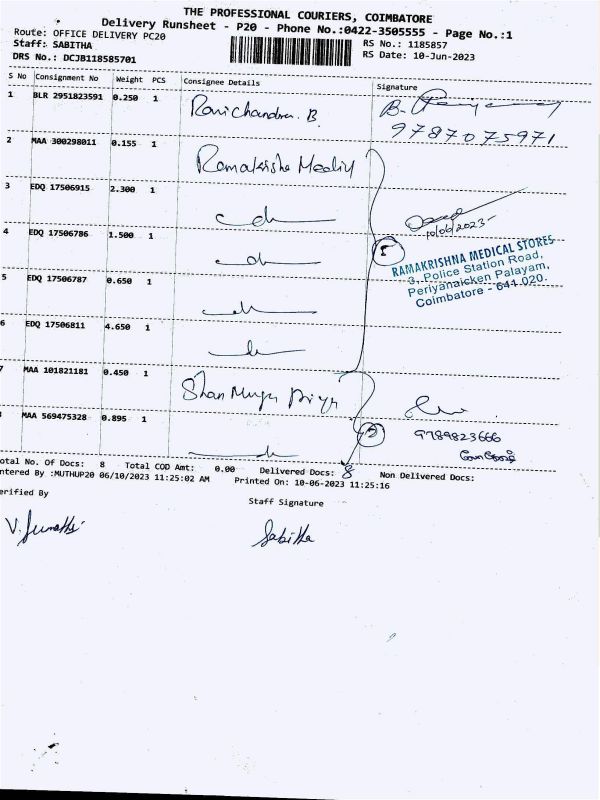 THE PROFESSIONAL COURIERS, COIMBATORE
Delivery Runsheet - P20 - Phone No.:0422-3505555 - Page No.:1
Route: OFFICE DELIVERY PC20
RS No.: 1185857
Staff: SABITHA
RS Date: 10-Jun-2023
DRS No.: DCJB118585701
S No Consignment No Weight PCS Consignee Details Signature
1 BLR 2951823591 0.250 1 Ravichandran. B
9787075971
2 MAA 300298011 0.155 1 Ramakrishna
3 EDQ 17506915 2.300 1 do
10/06/2023
4 EDQ 17506786 1.500 1 do
5
RAMAKRISHNA MEDICAL STORES
3, Police Station Road,
Periyanaicken Palayam,
Coimbatore - 641 020.
5 EDQ 17506787 0.650 1 do
6 EDQ 17506811 4.650 1 do
7 MAA 101821181 0.450 1 Shan Muga Priya
MAA 569475328 0.895 1 do
2
9789823666
otal No. Of Docs: 8 Total COD Amt: 0.00 Delivered Docs: 8 Non Delivered Docs:
ntered By :MUTHUP20 06/10/2023 11:25:02 AM Printed On: 10-06-2023 11:25:16
erified By
Staff Signature
Sabitha